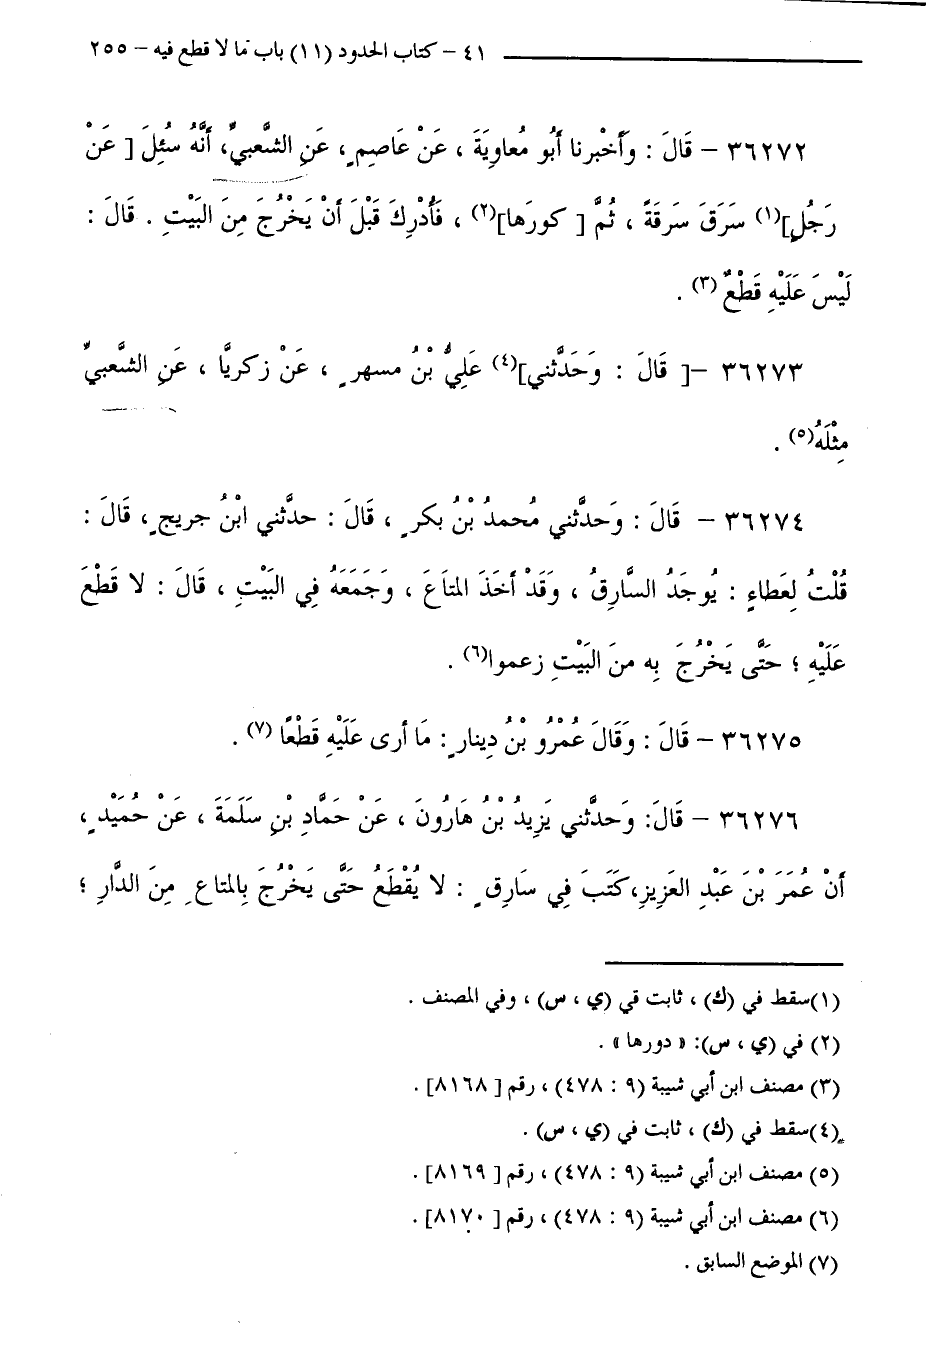 ٤١ - كتاب الحدود (١١) باب ما لا قطع فيه - ٢٥٥
٣٦٢٧٢ - قَالَ : وَأَخْبرنا أَبُو مُعاوِيَةَ ، عَنْ عَاصِمٍ ، عَنِ الشَّعبيِّ، أَنَّهُ سُئِلَ [ عَنْ
رَجُلٍ](١) سَرَقَ سَرقَةً ، ثُمَّ [ كورَها](٢) ، فَأُدْرِكَ قَبْلَ أَنْ يَخْرُجَ مِنَ البَيْتِ . قَالَ :
لَيْسَ عَلَيْهِ قَطْعٌ (٣) .
٣٦٢٧٣ -[ قَالَ : وَحَدَّثني](٤) عَلِيُّ بْنُ مسهرٍ ، عَنْ زكريَّا ، عَنِ الشَّعبيِّ
مِثْلَهُ(٥) .
٣٦٢٧٤ - قَالَ : وَحدَّثني مُحمدُ بْنُ بكرٍ ، قَالَ : حدَّثني ابْنُ جريجٍ ، قَالَ :
قُلْتُ لِعَطاءٍ : يُوجَدُ السَّارِقُ ، وَقَدْ أَخَذَ المتَاعَ ، وَجَمَعَهُ فِي البَيْتِ ، قَالَ : لا قَطْعَ
عَلَيْهِ ؛ حَتَّى يَخْرُجَ بِه منَ البَيْتِ زعموا(٦) .
٣٦٢٧٥ - قَالَ : وَقَالَ عُمْرُو بْنُ دِينارٍ : مَا أَرى عَلَيْهِ قَطْعًا (٧) .
٣٦٢٧٦ - قَالَ: وَحدَّثني يَزِيدُ بْنُ هَارُونَ ، عَنْ حَمَّادِ بْنِ سَلَمَةَ ، عَنْ حُمَيْدٍ ،
أَنْ عُمَرَ بْنَ عَبْدِ العَزِيزِ،كَتَبَ فِي سَارِقٍ : لا يُقْطَعُ حَتَّى يَخْرُجَ بِالمتاعِ مِنَ الدَّارِ ؛
(١)سقط في (ك) ، ثابت في (ي ، س) ، وفي المصنف .
(٢) في (ي ، س): « دورها » .
(٣) مصنف ابن أبي شيبة (٩ : ٤٧٨) ، رقم [ ٨١٦٨] .
(٤)سقط في (ك) ، ثابت في (ي ، س) .
(٥) مصنف ابن أبي شيبة (٩ : ٤٧٨) ، رقم [ ٨١٦٩] .
(٦) مصنف ابن أبي شيبة (٩ : ٤٧٨) ، رقم [ ٨١٧٠] .
(٧) الموضع السابق .